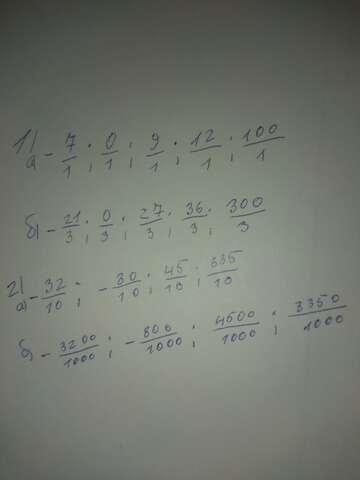 1) а) - 7/1 ; 0/1 ; 9/1 ; 12/1 ; 100/1
б) - 21/3 ; 0/3 ; 27/3 ; 36/3 ; 300/3
2) а) - 32/10 ; - 80/10 ; 45/10 ; 335/10
б) - 3200/1000 ; - 800/1000 ; 4500/1000 ; 3350/1000